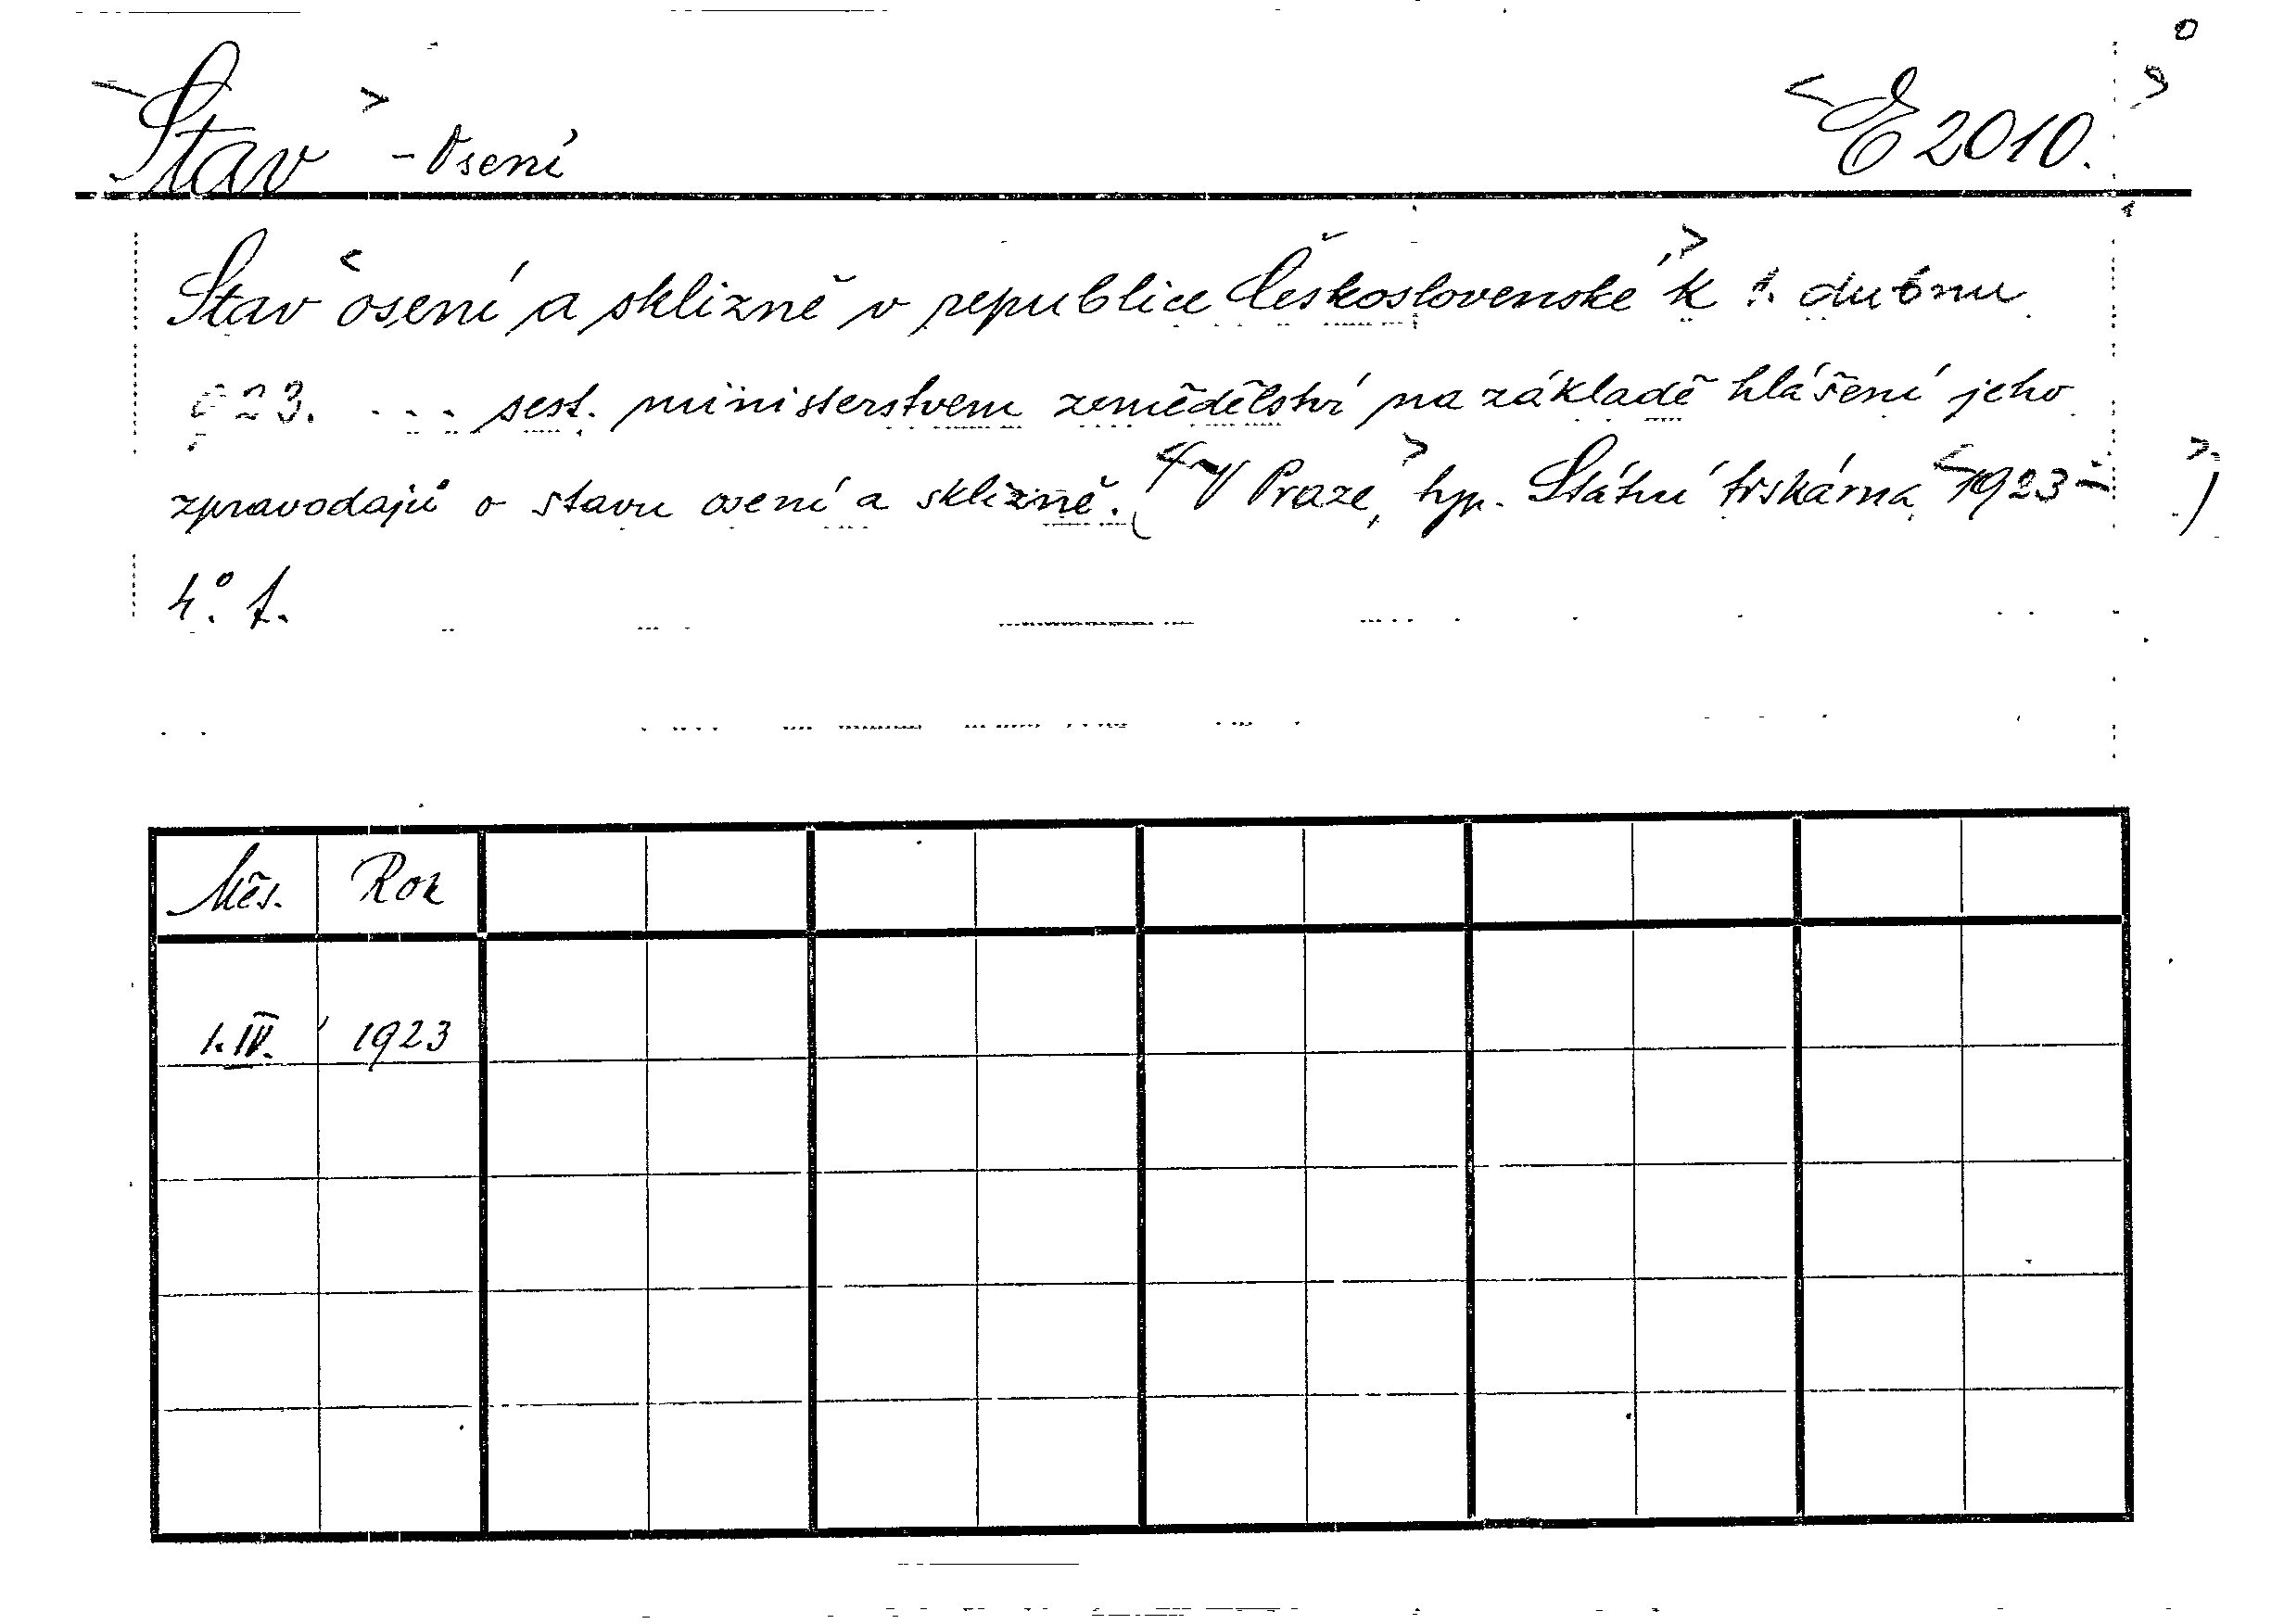 Stav - Osení E 2010.
Stav osení a sklizně v republice Československé k 1. dubnu
923. ... sest. ministerstvem zemědělství na základě hlášení jeho
zpravodajů o stavu osení a sklizně. (V Praze, typ. Státní tiskárna 1923 - )
4°. f.
Měs. Rok
1. IV. 1923